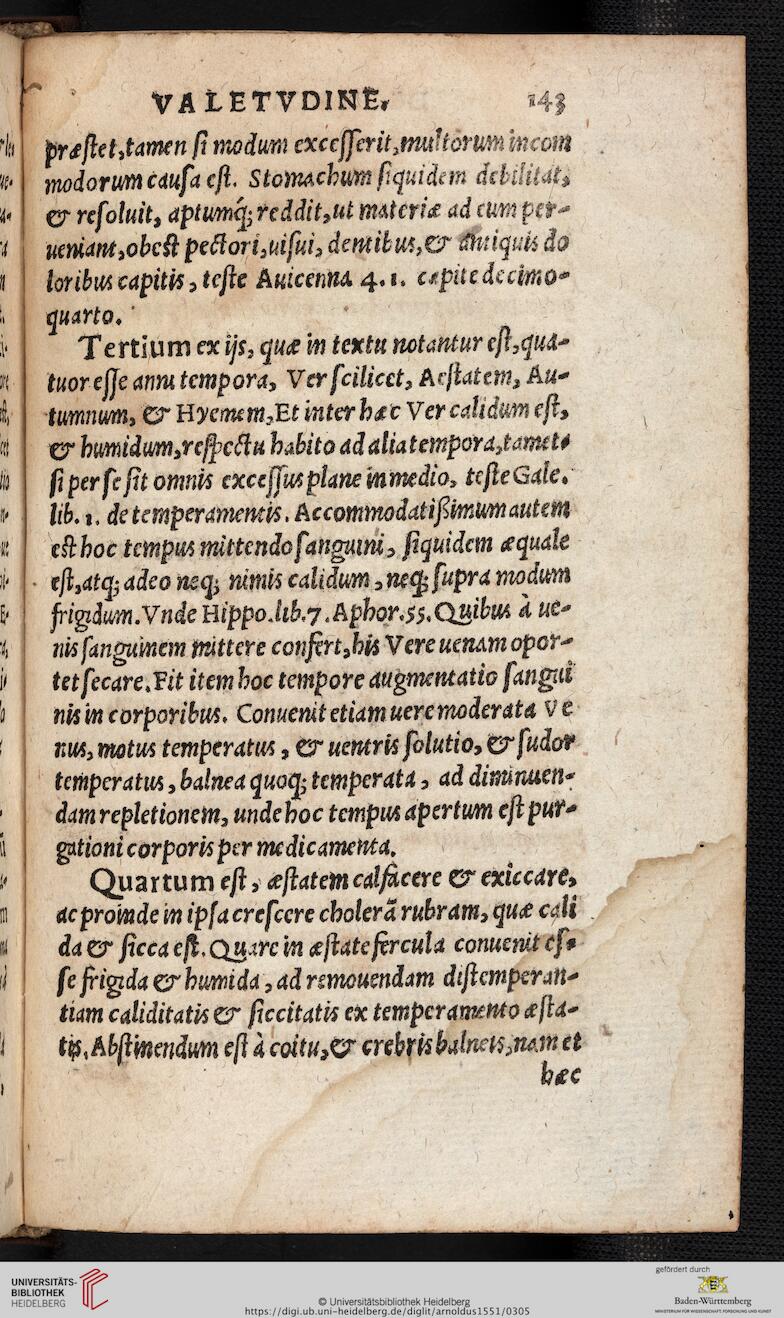 VALETVDINE. 143
præstet, tamen si modum excesserit, multorum incom
modorum causa est. Stomachum siquidem debilitat,
& resoluit, aptumq́; reddit, ut materiæ ad eum per-
ueniant, obest pectori, uisui, dentibus, & antiquis do
loribus capitis, teste Auicenna 4. 1. capite decimo-
quarto.
Tertium ex ijs, quæ in textu notantur est, qua-
tuor esse anni tempora, Ver scilicet, Aestatem, Au-
tumnum, & Hyemem, Et inter hæc Ver calidum est,
& humidum, respectu habito ad alia tempora, tamet-
si per se sit omnis excessus plane in medio, teste Gale.
lib. 1. de temperamentis. Accommodatißimum autem
est hoc tempus mittendo sanguini, siquidem æquale
est, atq; adeo neq; nimis calidum, neq; supra modum
frigidum. Vnde Hippo. lib. 7. Aphor. 55. Quibus à ue-
nis sanguinem mittere confert, his Vere uenam opor-
tet secare. Fit item hoc tempore augmentatio sangui
nis in corporibus. Conuenit etiam uere moderata Ve
nus, motus temperatus, & uentris solutio, & sudor
temperatus, balnea quoq; temperata, ad diminuen-
dam repletionem, unde hoc tempus apertum est pur-
gationi corporis per medicamenta.
Quartum est, æstatem calfacere & exiccare,
ac proinde in ipsa crescere cholerã rubram, quæ cali
da & sicca est. Quare in æstate fercula conuenit es-
se frigida & humida, ad remouendam distemperan-
tiam caliditatis & siccitatis ex temperamento æsta-
tis. Abstinendum est à coitu, & crebris balneis, nam et
hæc
UNIVERSITÄTS-
BIBLIOTHEK
HEIDELBERG
© Universitätsbibliothek Heidelberg
https://digi.ub.uni-heidelberg.de/diglit/arnoldus1551/0305
gefördert durch
Baden-Württemberg
MINISTERIUM FÜR WISSENSCHAFT, FORSCHUNG UND KUNST